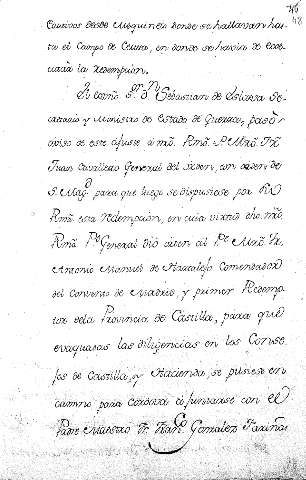 48
Cautivos desde Mequinez donde se hallavan has
ta el Campo de Ceuta, en donde se havia de exe
cutar la redempcion.
El exmo. Sr. Dn. Sebastian de Eslava Se
cretario y Ministro de Estado de Guerra, pasò
aviso de este ajuste à nro. Rmo. Pe. Mro. Fr.
Juan Cavallero General del orden, con orden de
S. Magd. para que luego se dispusiese por su
Rma. esta redempcion, en cuia virtud dho. nro.
Rmo. Pe. General diò orden al Pe. Mro. Fr.
Antonio Manuel de Hartalejo Comendador
del Convento de Madrid, y primer Redemp
tor dela Provincia de Castilla, para que
evaquadas las diligencias en los Conse
jos de Castilla, y Hacienda, se pusiese en
camino para Cordova à juntarse con el
Padre Maestro Fr. Franco. Gonzalez Fariñas